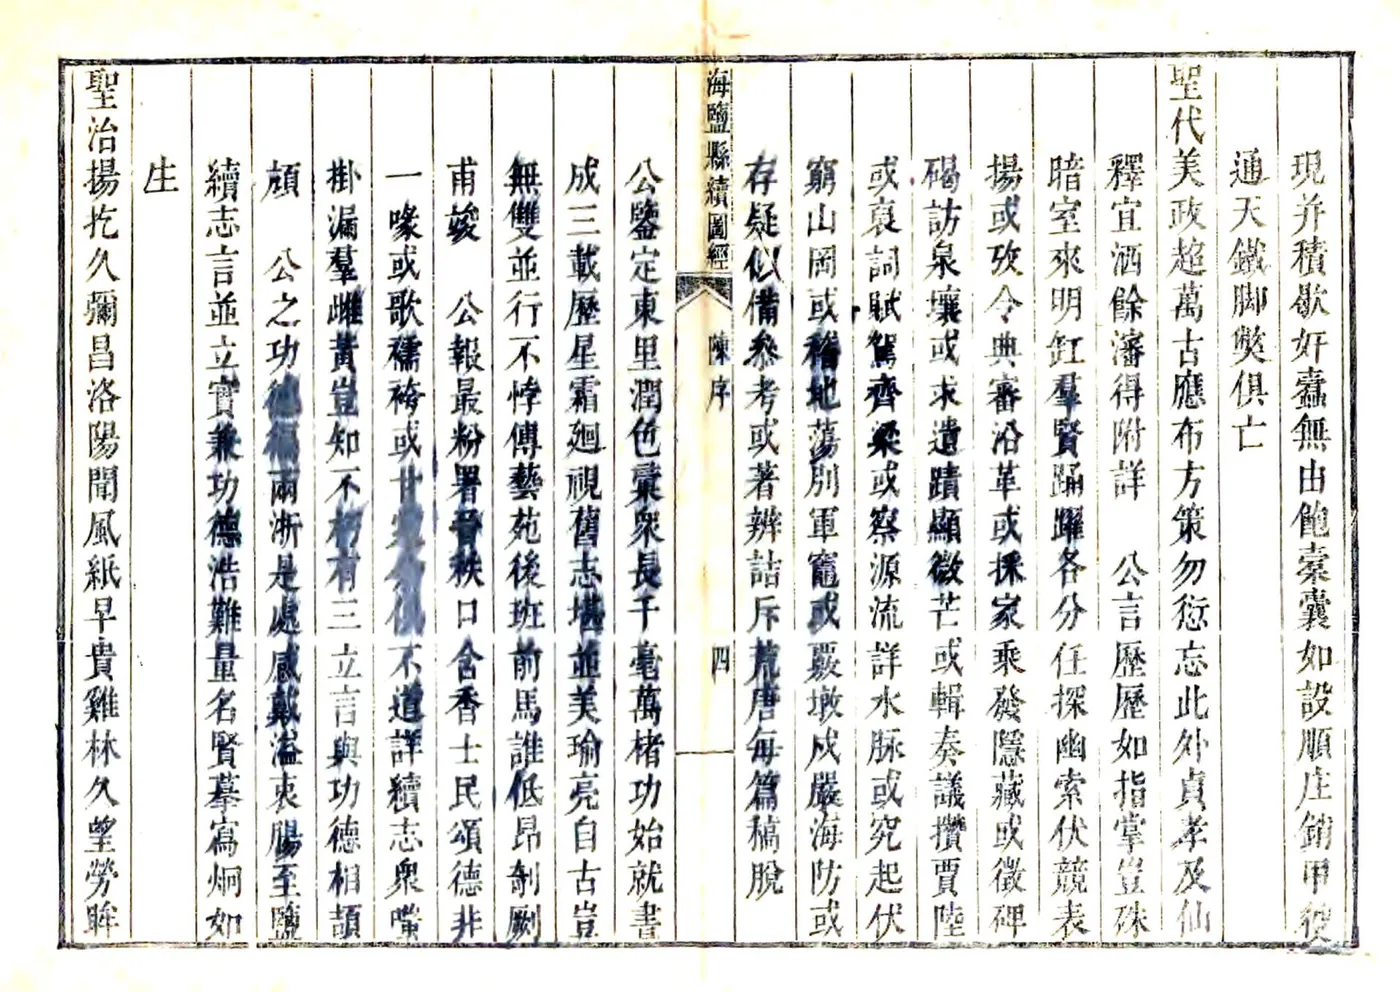 現并積歇奸蠹無由飽橐囊如設順庄銷甲役
通天鐵脚獘俱亡
聖代美政超萬古應布方策勿愆忘此外貞孝及仙
釋宜洒餘瀋得附詳　公言歷歷如指掌豈殊
暗室來明釭羣賢踊躍各分任探幽索伏競表
揚或攷令典審沿革或採家乘發隱藏或徵碑
碣訪泉壤或求遺蹟顯微芒或輯奏議攢賈陸
或裒詞賦駕齊梁或察源流詳水脉或究起伏
窮山岡或稽地蕩別軍竈或覈墩戍嚴海防或
存疑似備參考或著辨詰斥荒唐每篇稿脫
海鹽縣續圖經
陳序
四
公鑒定東里潤色藁衆長千毫萬楮功始就書
成三載歷星霜廻視舊志堪並美瑜亮自古豈
無雙並行不悖傅藝苑後班前馬誰低昂剞劂
甫竣　公報最粉署晉秩口含香士民頌德非
一喙或歌襦袴或甘不道詳續志衆嘴
掛漏羣雌黃豈知不朽有三立言與功德相頡
頏　公之功德福兩浙是處感戴溢衷腸至鹽
續志言並立實兼功德浩難量名賢摹寫炯如
生
聖治揚扢久彌昌洛陽聞風紙早貴雞林久望勞眸